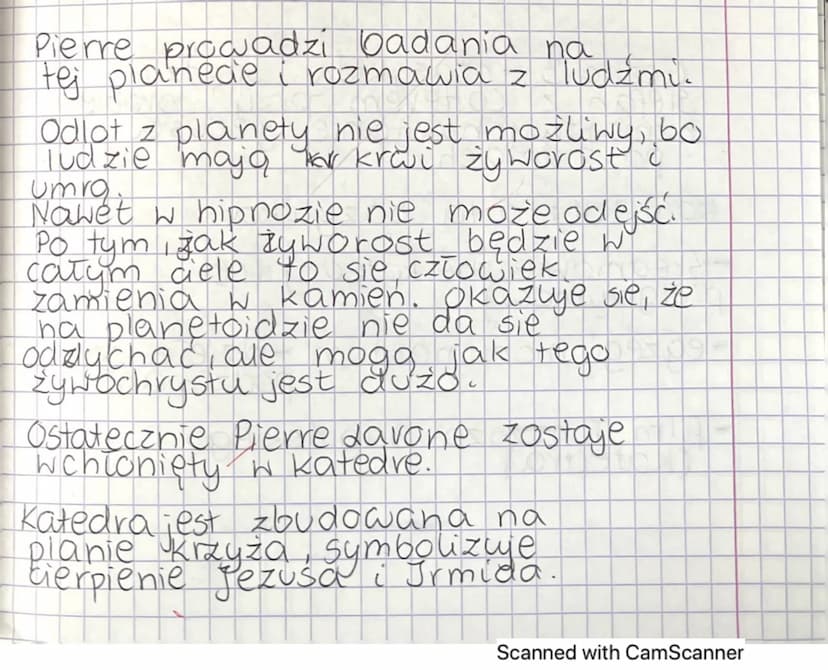 Pierre prowadzi badania na
tej planecie i rozmawia z ludźmi.
Odlot z planety nie jest możliwy, bo
ludzie mają krwi żyworost i
umrą.
Nawet w hipnozie nie może odejść.
Po tym, jak żyworost będzie w
całym ciele to się człowiek
zamienia w kamień. Okazuje się, że
na planetoidzie nie da się
oddychać, ale mogą jak tego
żywochrystu jest dużo.
Ostatecznie Pierre Lavone zostaje
wchłonięty w katedre.
Katedra jest zbudowana na
planie krzyża, symbolizuje
cierpienie Jezusa i Irmida.
Scanned with CamScanner